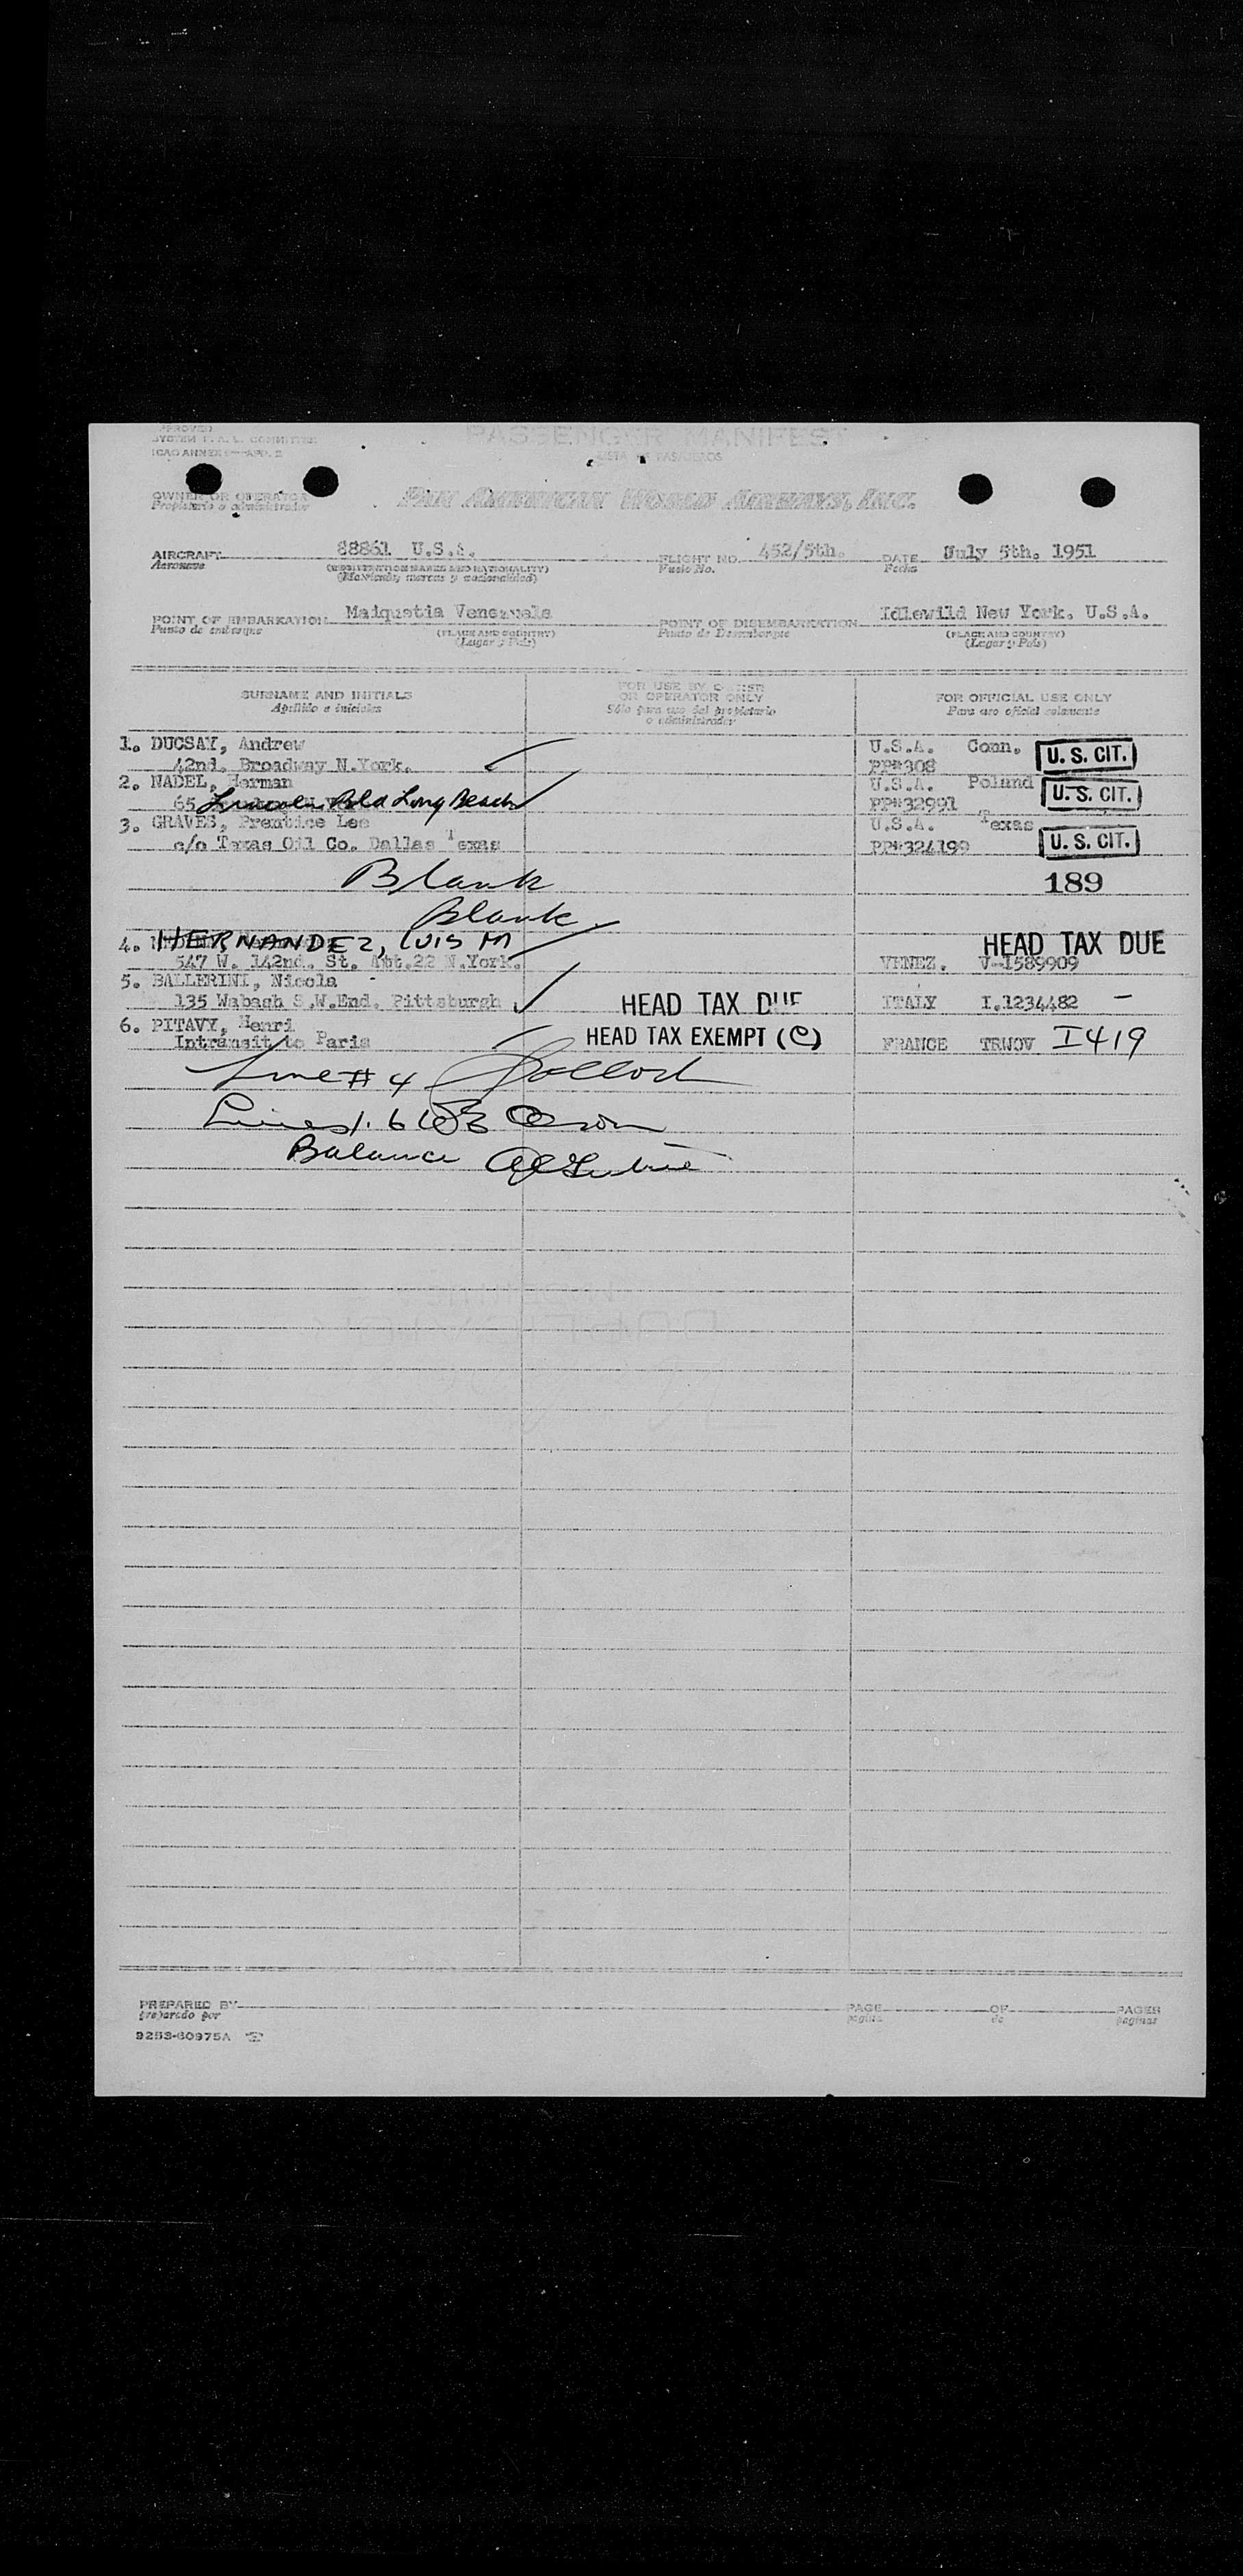 APPROVED
SYSTEM F. A. L. COMMITTEE
ICAO ANNEX 9—APP. 2
PASSENGER MANIFEST
LISTA DE PASAJEROS
OWNER OR OPERATOR
Propietario o administrador
PAN AMERICAN WORLD AIRWAYS, INC.
AIRCRAFT 88861 U.S.A. FLIGHT NO. 452/5th. DATE July 5th. 1951
Aeronave (REGISTRATION MARKS AND NATIONALITY) Vuelo No. Fecha
(Matrícula, marcas y nacionalidad)
POINT OF EMBARKATION Maiquetia Venezuela POINT OF DISEMBARKATION Idlewild New York. U.S.A.
Punto de embarque (PLACE AND COUNTRY) Punto de Desembarque (PLACE AND COUNTRY)
(Lugar y País) (Lugar y País)
SURNAME AND INITIALS FOR USE BY OWNER OR OPERATOR ONLY FOR OFFICIAL USE ONLY
Apellido e iniciales Sólo para uso del propietario o administrador Para uso oficial solamente
1. DUCSAY, Andrew U.S.A. Conn. U. S. CIT.
42nd. Broadway N.York. PP#308
2. NADEL, Herman U.S.A. Poland U. S. CIT.
65 Lincoln Bld Long Beach PP#32991
3. GRAVES, Prentice Lee U.S.A. Texas
c/o Texas Oil Co. Dallas Texas PP#324199 U. S. CIT.
Blank 189
Blank
4. HERNANDEZ, LUIS M HEAD TAX DUE
547 W. 142nd. St. Apt.22 N.York. VENEZ. V-1589909
5. BALLERINI, Nicola
135 Wabash S.W.End. Pittsburgh HEAD TAX DUE ITALY I.1234482 —
6. PITAVY, Henri HEAD TAX EXEMPT (C)
Intransit to Paris FRANCE TRWOV I419
Line # 4
Lines 1. 6
Balance
PREPARED BY PAGE OF PAGES
preparado por página de páginas
9253-60975A